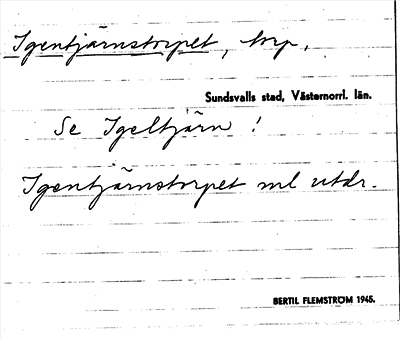 Igentjärnstorpet, torp,
Sundsvalls stad, Västernorrl. län.
Se Igeltjärn !
Igentjärnstorpet ml utdr.
BERTIL FLEMSTRÖM 1945.